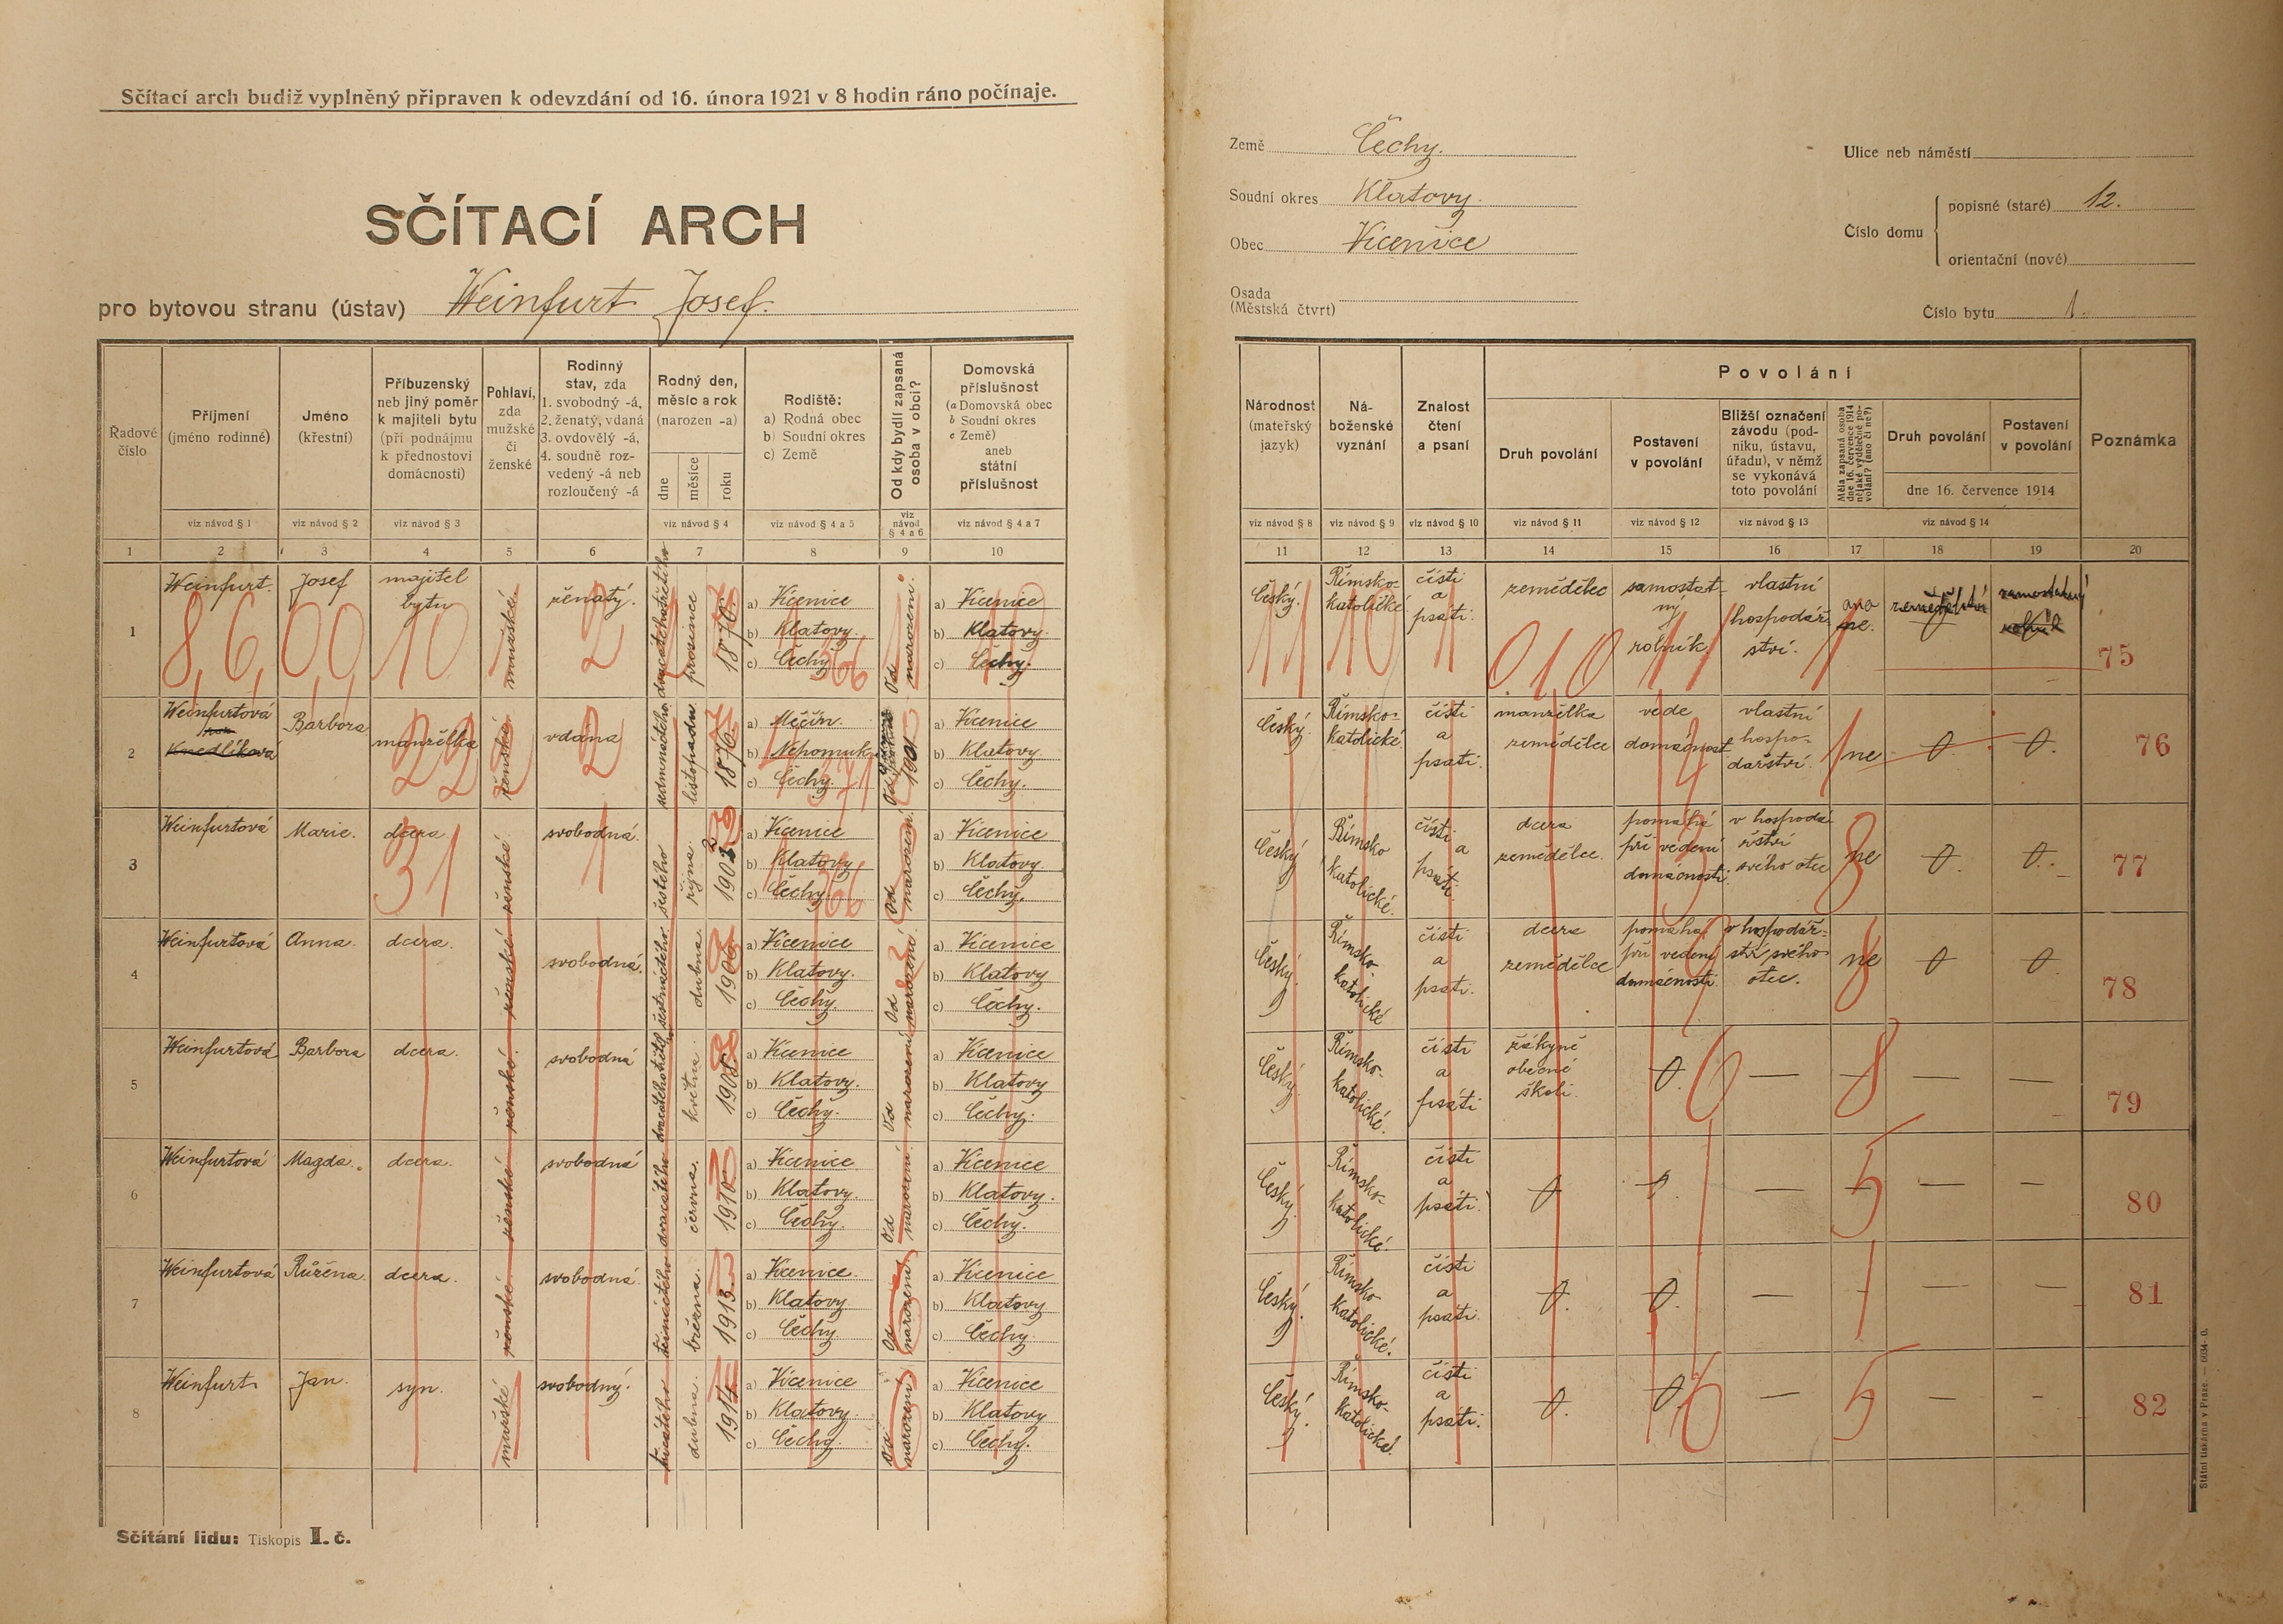 Sčítací arch budiž vyplněný připraven k odevzdání od 16. února 1921 v 8 hodin ráno počínaje.
SČÍTACÍ ARCH
pro bytovou stranu (ústav) Weinfurt Josef.
Řadové číslo
Příjmení (jméno rodinné)
Jméno (křestní)
Příbuzenský neb jiný poměr k majiteli bytu (při podnájmu k přednostovi domácnosti)
Pohlaví, zda mužské či ženské
Rodinný stav, zda 1. svobodný -á, 2. ženatý, vdaná 3. ovdovělý -á, 4. soudně rozvedený -á neb rozloučený -á
Rodný den, měsíc a rok (narozen -a)
dne měsíce roku
Rodiště: a) Rodná obec b) Soudní okres c) Země
Od kdy bydlí zapsaná osoba v obci?
Domovská příslušnost (a Domovská obec b Soudní okres c Země) aneb státní příslušnost
viz návod § 1 viz návod § 2 viz návod § 3 viz návod § 4 viz návod § 4 a 5 viz návod § 4 a 6 viz návod § 4 a 7
1 2 3 4 5 6 7 8 9 10
1 Weinfurt. Josef majitel bytu mužské. ženatý. prosince a) Vícenice b) Klatovy. c) Čechy Od narození. a) Vícenice b) Klatovy. c) Čechy.
8, 6, 00 10 2 366
2 Weinfurtová Knedlíková Barbora manželka ženské vdaná sedmnáctého listopadu a) Měčín. b) Nepomuk c) Čechy. 1901 a) Vícenice b) Klatovy. c) Čechy.
22 2 371
3 Weinfurtová Marie. dcera ženské svobodná. šestého října a) Vícenice b) Klatovy c) Čechy Od narození. a) Vícenice b) Klatovy. c) Čechy.
31 1 366
4 Weinfurtová Anna. dcera. ženské svobodná. šestnáctého dubna 1906 a) Vícenice b) Klatovy. c) Čechy. Od narození a) Vícenice b) Klatovy c) Čechy.
5 Weinfurtová Barbora dcera. ženské svobodná května 1908 a) Vícenice b) Klatovy. c) Čechy. Od narození a) Vícenice b) Klatovy c) Čechy.
6 Weinfurtová Magda. dcera. ženské svobodná dvacátého června. 1910 a) Vícenice b) Klatovy. c) Čechy. Od narození a) Vícenice b) Klatovy. c) Čechy.
7 Weinfurtová Růžena. dcera. ženské svobodná. třináctého března. 1913. a) Vícenice. b) Klatovy c) Čechy. Od narození a) Vícenice b) Klatovy c) Čechy.
8 Weinfurt Jan. syn. mužské svobodný. dubna. 1914. a) Vícenice b) Klatovy. c) Čechy. Od narození a) Vícenice b) Klatovy c) Čechy.
Sčítání lidu: Tiskopis I. č.
Země Čechy.
Soudní okres Klatovy.
Obec Vícenice
Osada (Městská čtvrt)
Ulice neb náměstí
Číslo domu
popisné (staré) 12.
orientační (nové)
Číslo bytu 1.
Národnost (mateřský jazyk)
Náboženské vyznání
Znalost čtení a psaní
Povolání
Druh povolání
Postavení v povolání
Bližší označení závodu (podniku, ústavu, úřadu), v němž se vykonává toto povolání
Měla zapsaná osoba dne 16. července 1914 nějaké výdělečné povolání? (ano či ne?)
Druh povolání
Postavení v povolání
dne 16. července 1914
Poznámka
viz návod § 8 viz návod § 9 viz návod § 10 viz návod § 11 viz návod § 12 viz návod § 13 viz návod § 14
11 12 13 14 15 16 17 18 19 20
Český. Římsko katolické čísti a psáti. zemědělec samostatný rolník vlastní hospodářství. ano ne. zemědělství samostatný rolník 75
11 10 1 010 11 1
Český. Římsko-katolické. čísti a psáti. manželka zemědělce vede domácnost vlastní hospodářství. ne 0 0. 76
Český Římsko katolické. čísti a psáti. dcera zemědělce. pomáhá při vedení domácnosti. v hospodářství svého otce ne 0. 0. 77
Český. Římsko-katolické čísti a psáti. dcera zemědělce pomáhá při vedení domácnosti. v hospodářství svého otce. ne 0 0. 78
Český. Římsko-katolické. čísti a psáti žákyně obecné školi. 0. — — — — 79
Český. Římsko-katolické. čísti a psáti. 0 0. — — — — 80
Český. Římsko katolické. čísti a psáti. 0. 0. — — — — 81
Český. Římsko-katolické. čísti a psáti. 0. 0. — — — - 82
Státní tiskárna v Praze. — 6034-0.